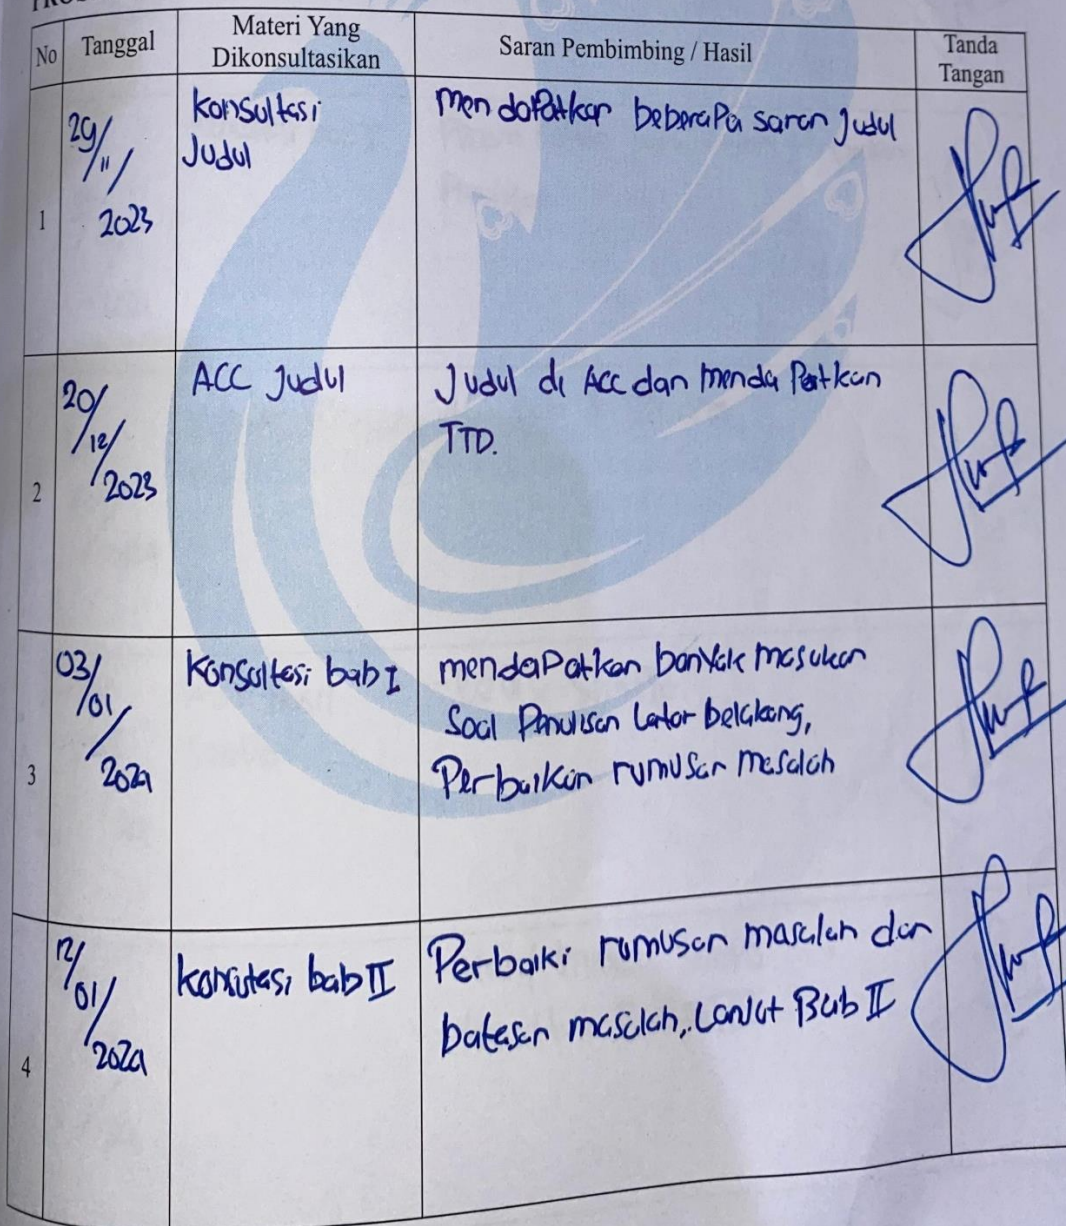 No
Tanggal
Materi Yang
Dikonsultasikan
Saran Pembimbing / Hasil
Tanda
Tangan
1
29/
11/
2023
Konsultasi
Judul
mendapatkan beberapa saran Judul
2
20/
12/
2023
ACC Judul
Judul di Acc dan mendapatkan
TTD.
3
03/
01/
2024
Konsultasi bab I
mendapatkan banyak masukan
Soal Penulisan Latar belakang,
Perbaikan rumusan masalah
4
12/
01/
2024
Konsutasi bab II
Perbaiki rumusan masalah dan
batasan masalah, Lanjut Bab II